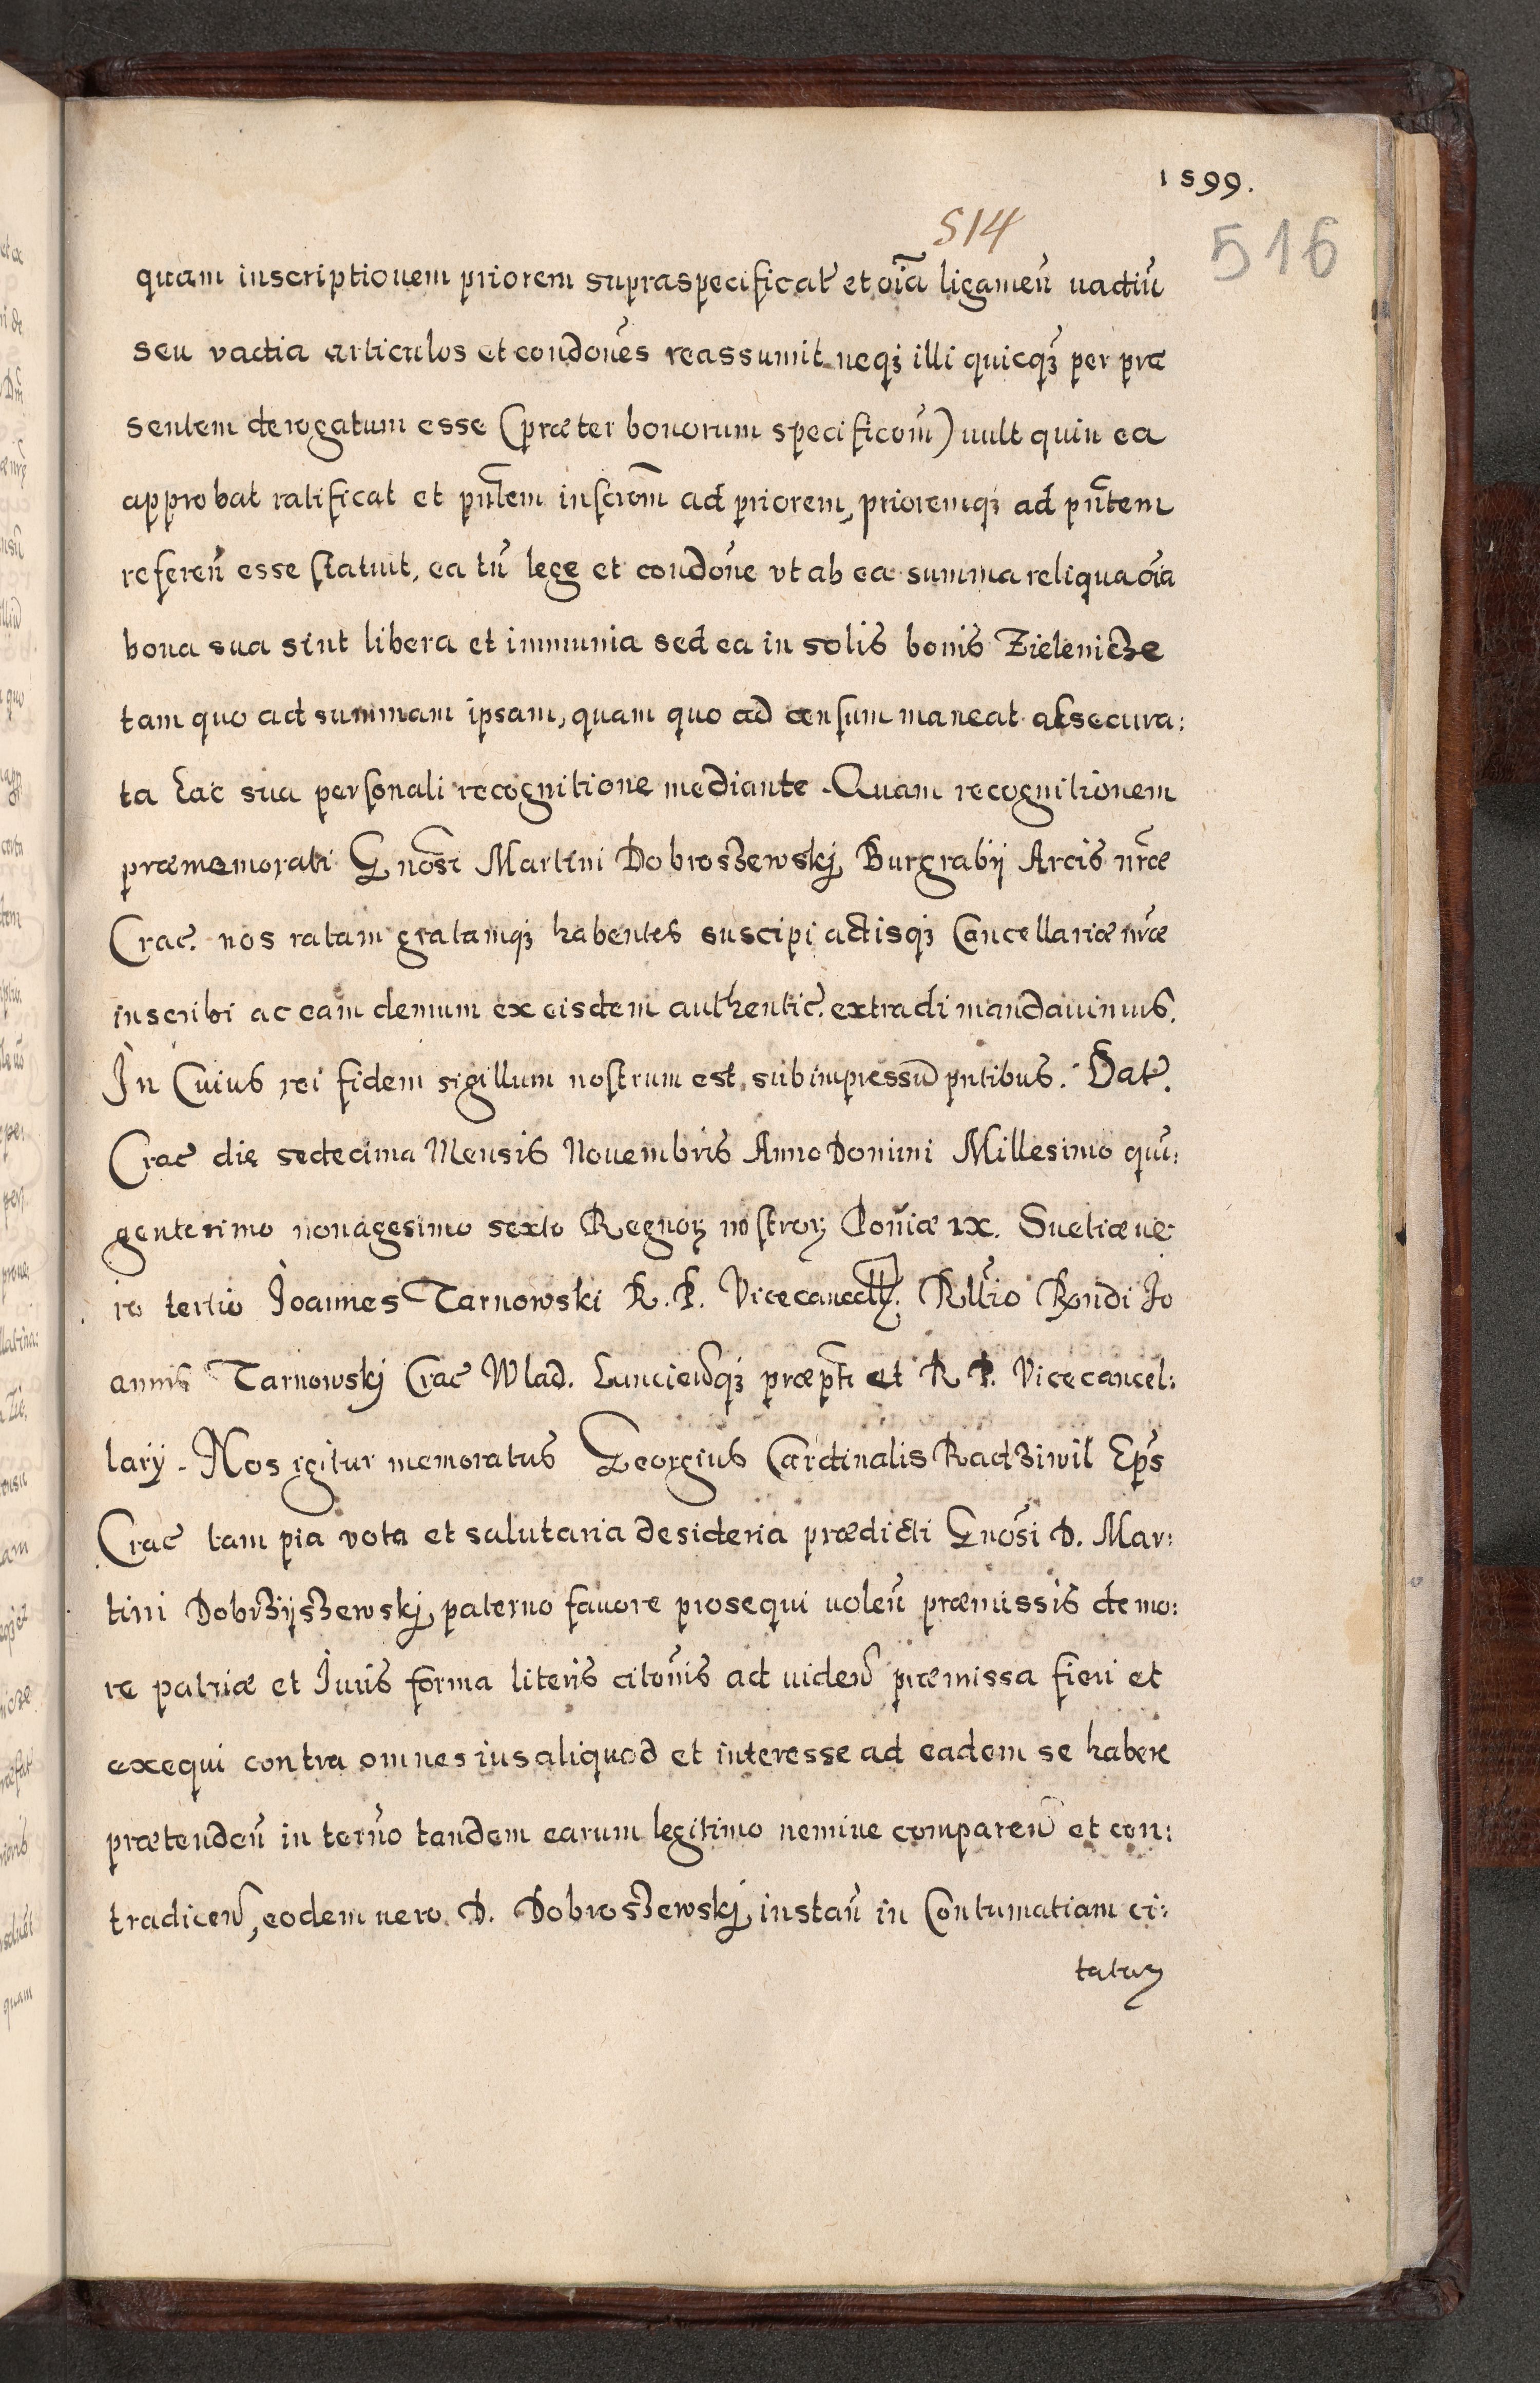 1599.
514
516
quam inscriptionem priorem supraspecificat̃ et oĩa ligameñ uadiũ
seu vadia articulos et condoñes reassumit neqꝫ illi quicqꝫ per præ
sentem derogatum esse (præter bonorum specificoñm) uult quin ea
approbat ratificat et pñtem inscrõm ad priorem, prioremqꝫ ad pñtem
refereñ esse statuit, ea tñ lege et condoñe vt ab ea summa reliqua oĩa
bona sua sint libera et immunia sed ea in solis bonis Zielenicze
tam quo ad summam ipsam, quam quo ad censum maneat assecura:
ta hac sua personali recognitione mediante. Quam recognitionem
præmemorati Gnosi Martini Dobroszewskj Burgrabij Arcis nr̃æ
Crac. nos ratam gratamqꝫ habentes suscipi actisqꝫ Cancellariæ nr̃æ
inscribi ac eam demum ex eisdem authentic. extradi mandauimus.
In Cuius rei fidem sigillum nostrum est subimpressũ pntibus. Dat.
Crac die sedecima Mensis Nouembris Anno Domini Millesimo quĩ:
gentesimo nonagesimo sexto Regnoꝝ nostroꝝ Poñiæ IX. Suetiæ ue
ro tertio Joannes Tarnowski R. P. Vicecancell. Rllio Rxndi Jo
annis Tarnowskj Crac Wlad. Luncienqꝫ præpti et R P. Vicecancel:
larij. Nos igitur memoratus Georgius Cardinalis Radziwil Ep̃s
Crac tam pia vota et salutaria desideria prædicti Gnosi D. Mar:
tini Dobrzyszewskj paterno fauore prosequi uoleñ præmissis de mo:
re patriæ et Iuris forma literis citoñis ad uideñ præmissa fieri et
exequi contra omnes ius aliquod et interesse ad eadem se habere
prætendeñ in termo tandem earum legitimo nemine compareñ et con:
tradiceñ, eodem uero D. Dobroszewskj instañ in Contumatiam ci:
tatoꝝ